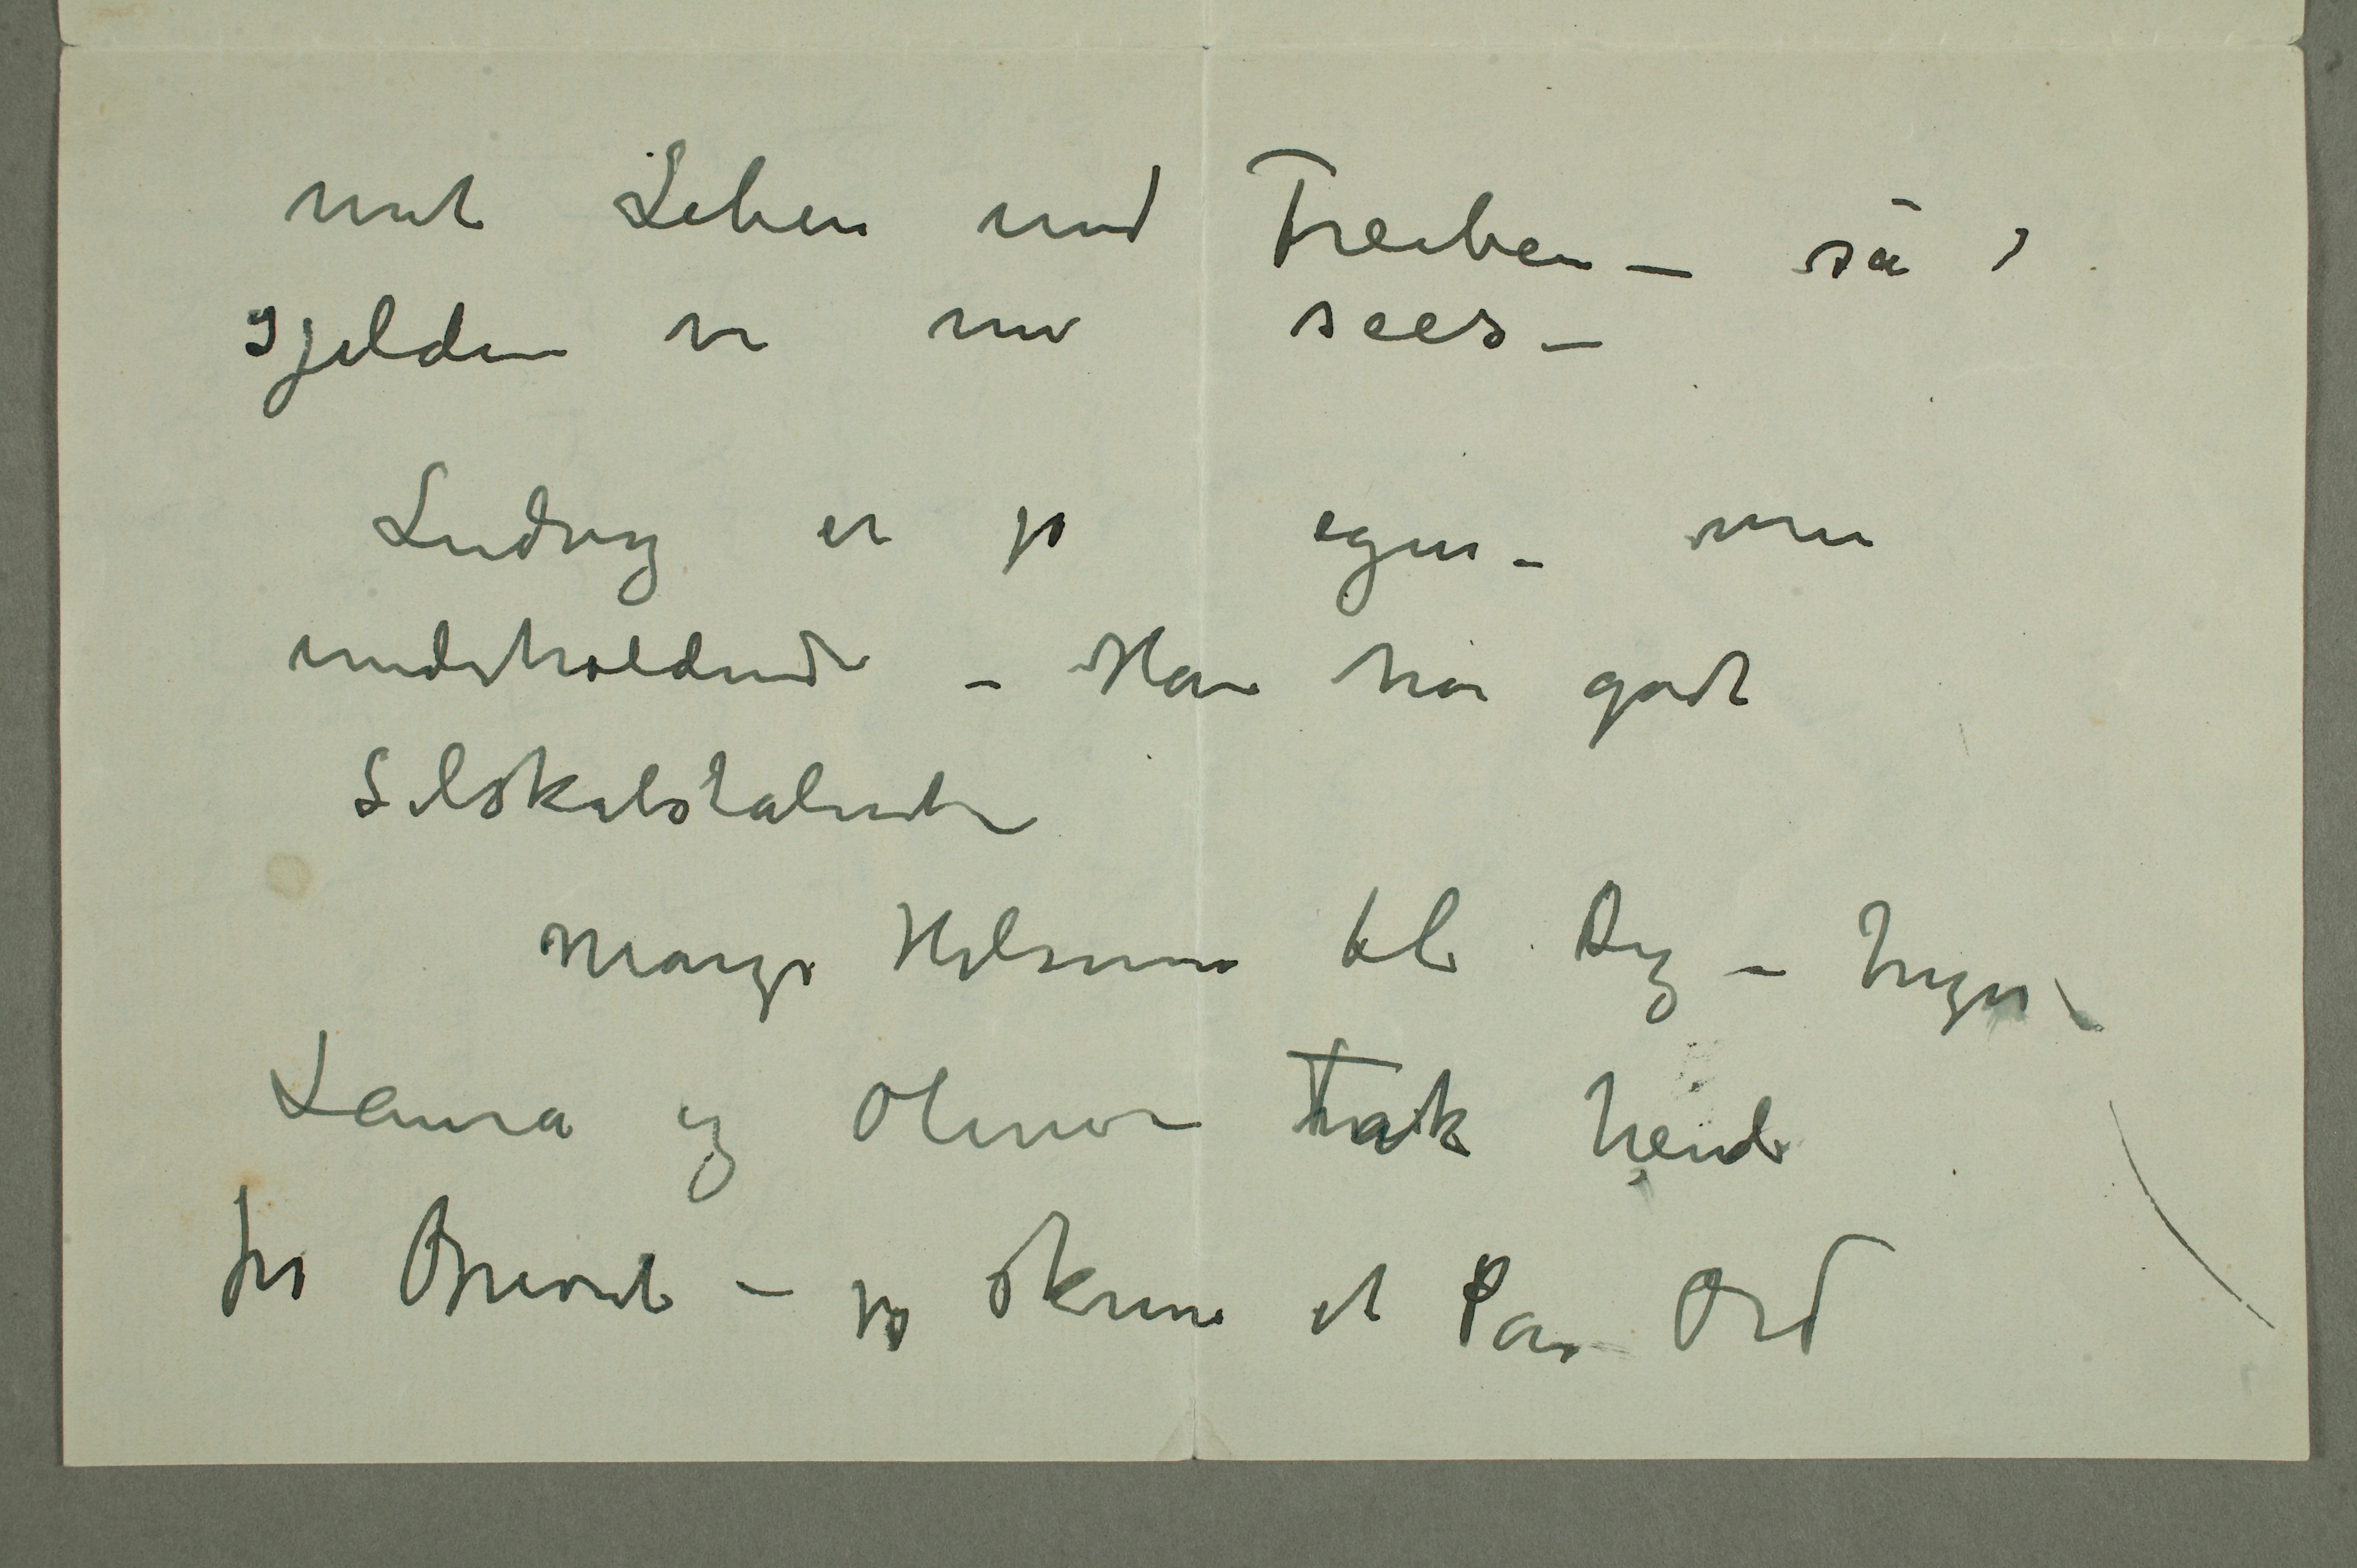 mit Leben und Treiben – så
sjelden vi nu sees –
Ludvig er jo egen – men
underholdende – Han har godt
Selskabstalent
Mange Hilsener til Dig – Inger
Laura og Olivia Tak hende
for Brevet – jeg skriver et Par Ord